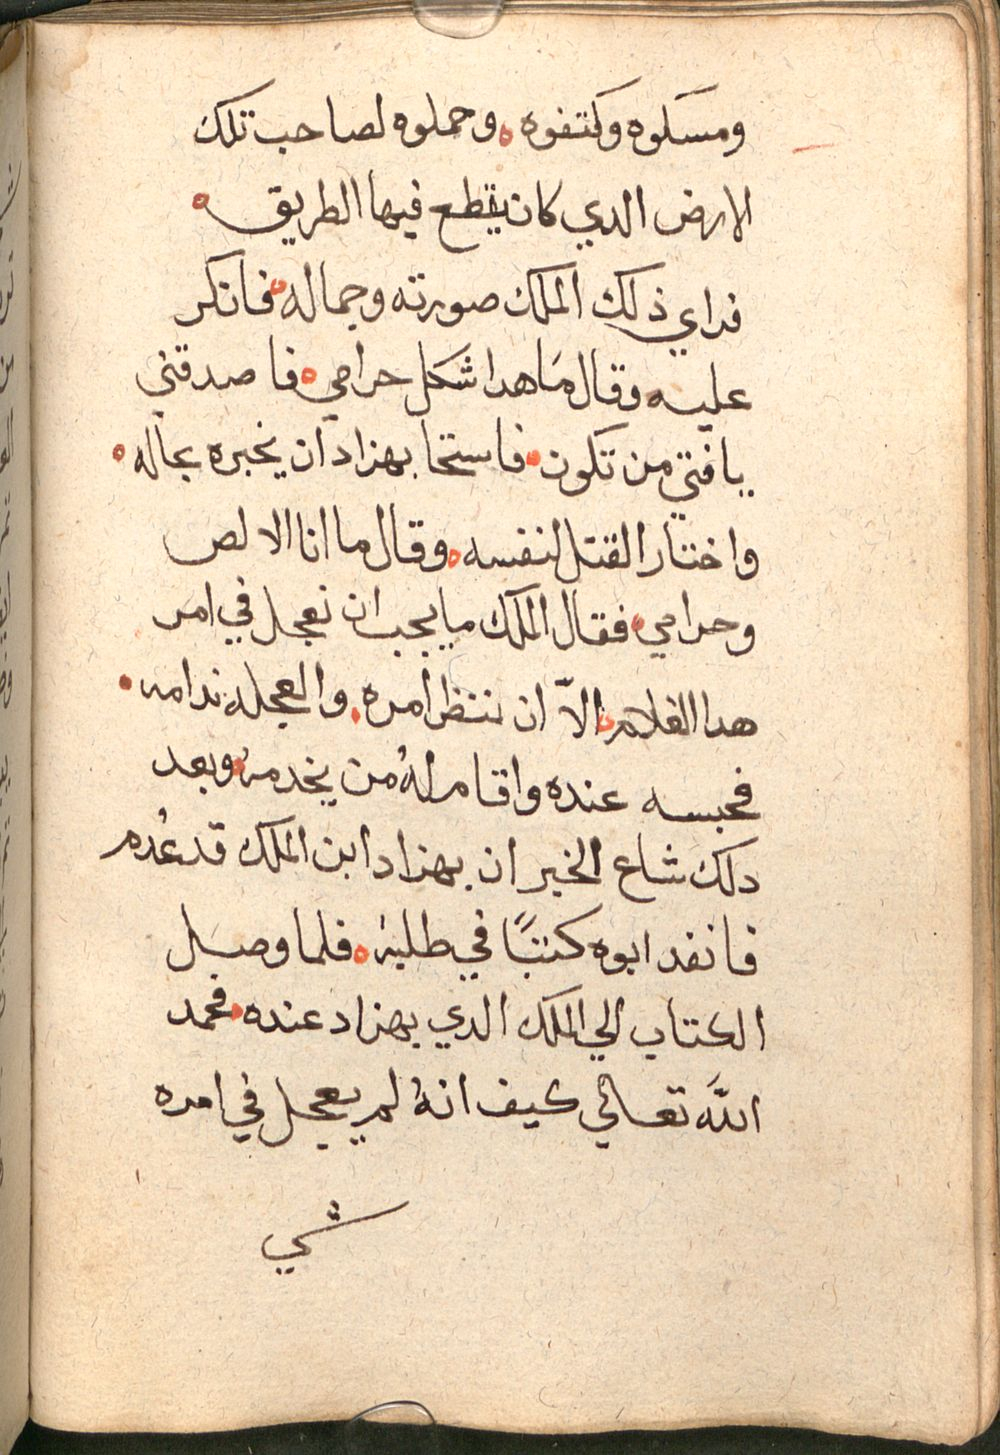 ومسكوه وكتفوه ه وحملوه لصاحب تلك
الارض الدي كان يقطع فيها الطريق ه
فراي ذلك الملك صورته وجماله فانكر
عليه وقال مَا هدا شكل حرامي ه فاصدقني
يا فتي من تكون فاستحا بهزاد ان يخبره بحاله ه
واختار القتل لنفسه ه وقال ما انا الا لص
وحرامي فقال الملك ما يجب ان نعجل في امر
هدا الغلام الاّ ان ننتظر امره والعجله ندامه
فحبسه عنده واقام لهُ من يخدمهُ وبعد
دلك شاع الخبر ان بهزاد ابن الملك قد عُدم
فانفد ابوه كتبًا في طلبهُ ه فلما وصل
الكتاب الي الملك الدي بهزاد عنده فحمد
اللَّه تعالي كيف انهُ لم يعجل في امره
شي